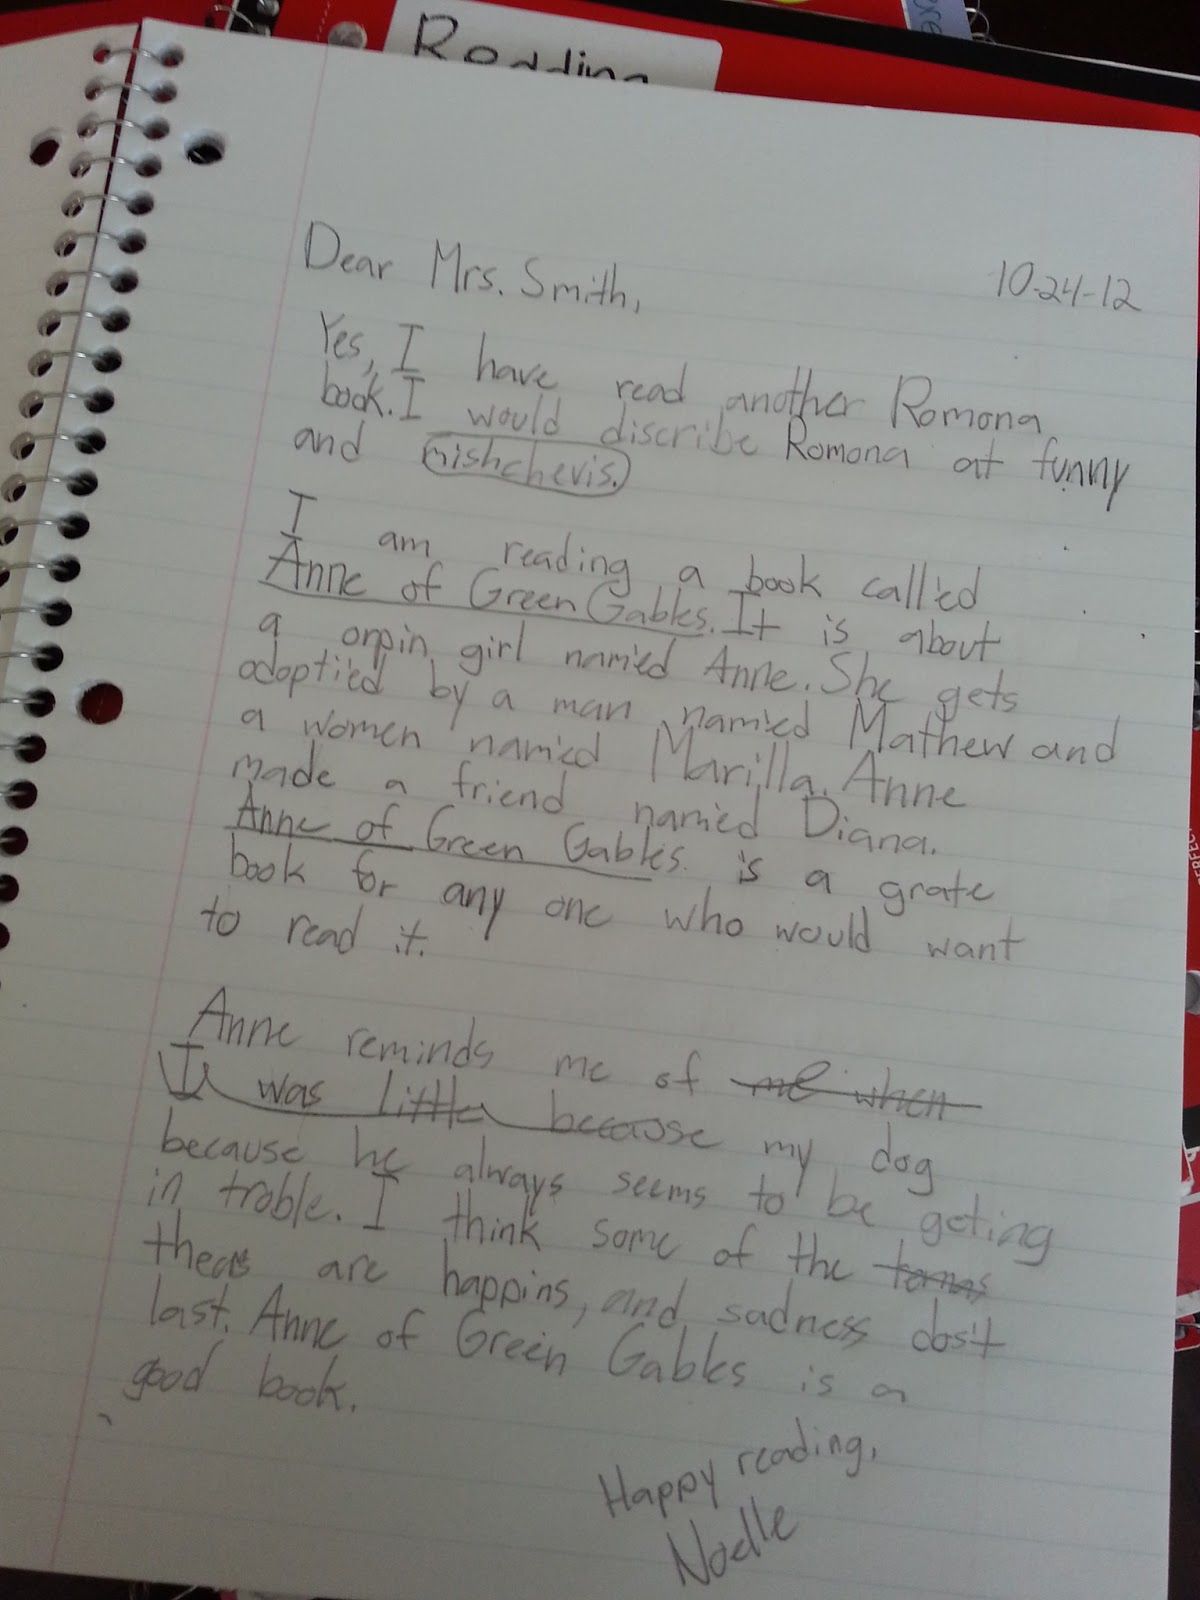 Reading
Dear Mrs. Smith,
10-24-12
Yes, I have read another Romona
book. I would discribe Romona at funny
and mishchevis.
I am reading a book called
Anne of Green Gables. It is about
a orpin girl named Anne. She gets
adoptied by a man named Mathew and
a women named Marilla. Anne
made a friend named Diana.
Anne of Green Gables. is a grate
book for any one who would want
to read it.
Anne reminds me of me when
I was little because my dog
because he always seems to be geting
in troble. I think some of the
are happins, and sadness
last. Anne of Green Gables is a
good book.
Happy reading,
Noelle